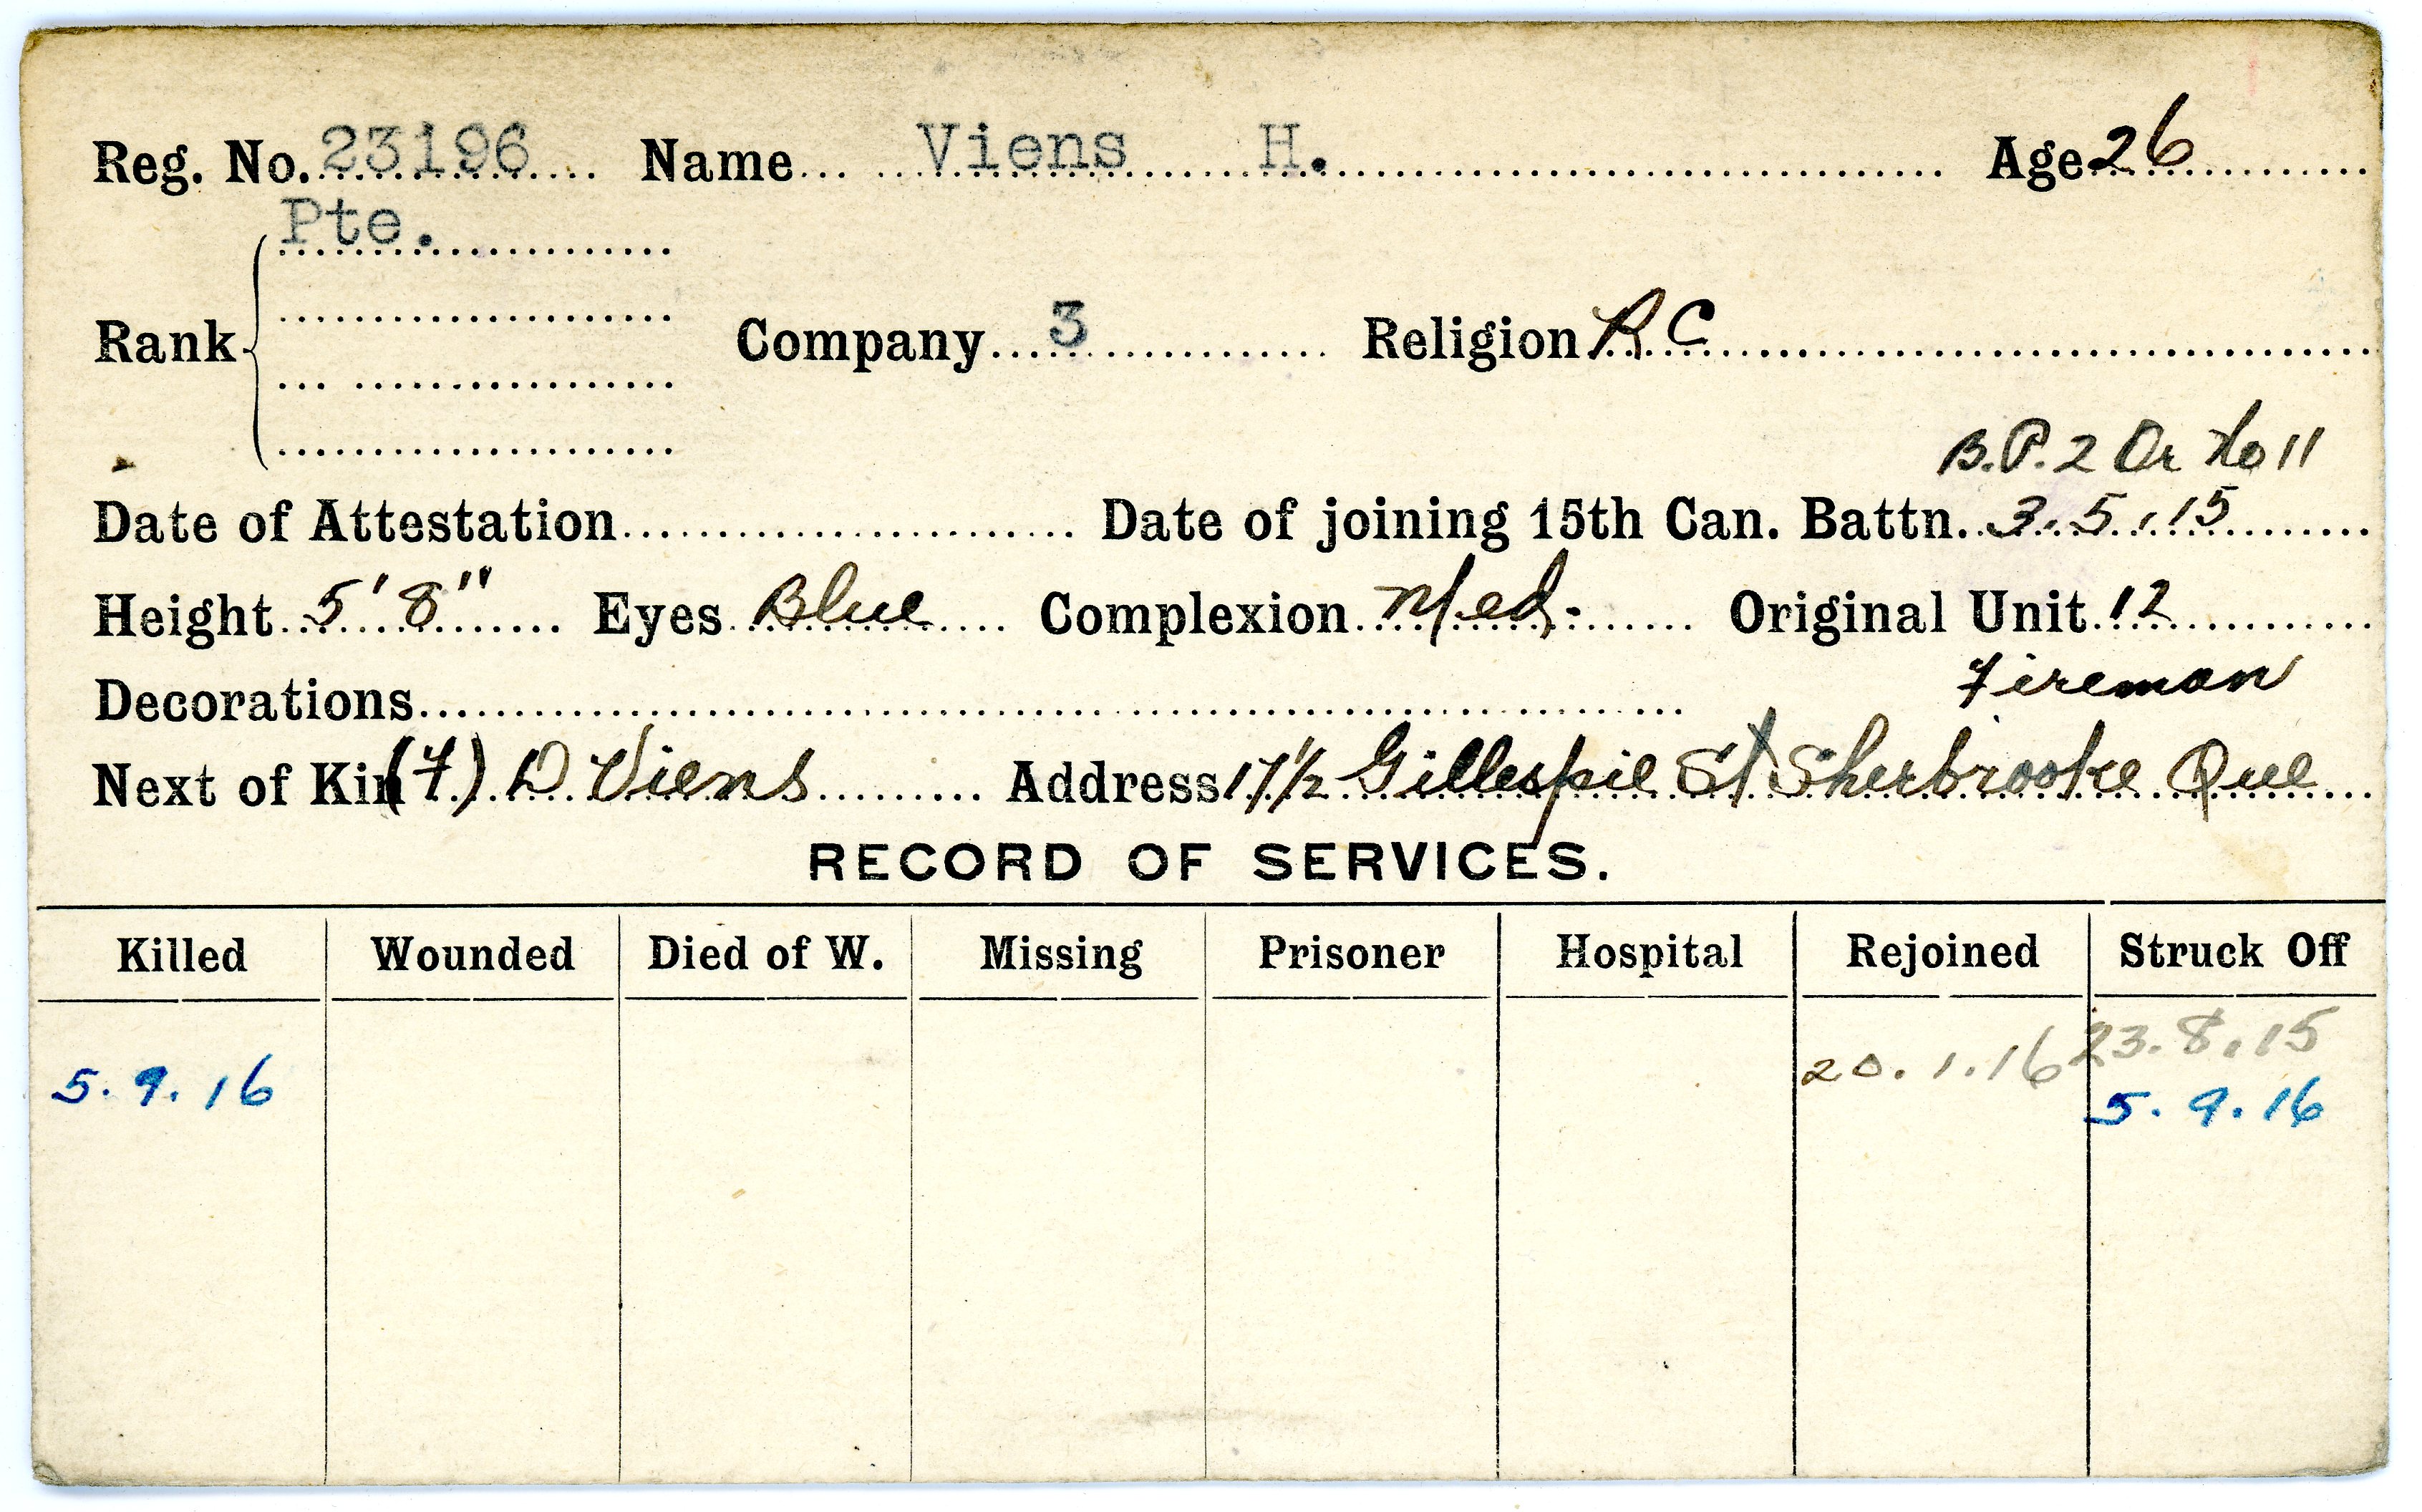 Reg. No. 23196 Name Viens H. Age 26
Pte.
Rank Company 3 Religion R C
B.P. 2 Or No 11
Date of Attestation Date of joining 15th Can. Battn. 3.5.15
Height 5' 8" Eyes Blue Complexion Med. Original Unit 12
Decorations Fireman
Next of Kin (F) D Viens Address 17½ Gillespie St Sherbrooke Que
RECORD OF SERVICES.
Killed Wounded Died of W. Missing Prisoner Hospital Rejoined Struck Off
5.9.16 20.1.16 23.8.15
5.9.16